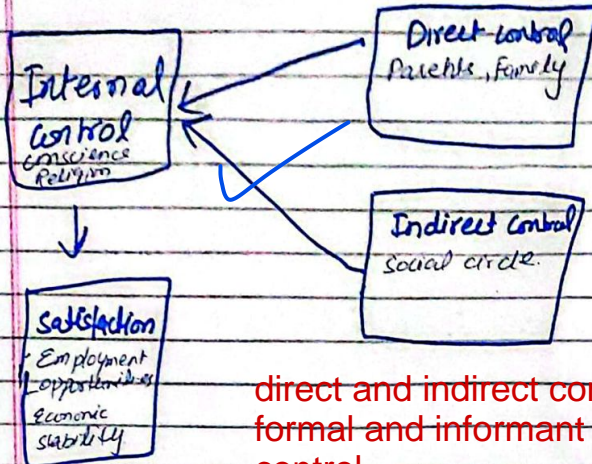 Internal
control
conscience
Religion
Direct control
Parents, Family
Indirect control
social circle.
satisfaction
- Employment
opportunities
Economic
stability
direct and indirect con
formal and informant
control